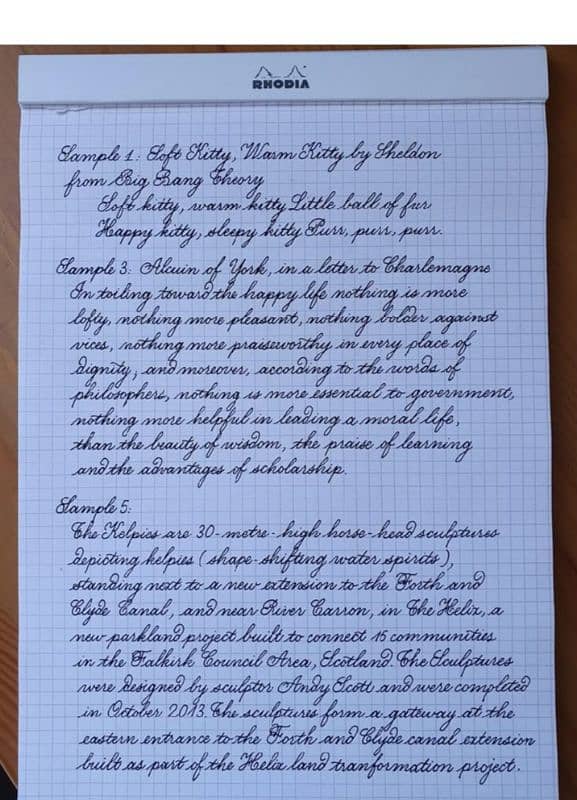 RHODIA
Sample 1: Soft Kitty, Warm Kitty by Sheldon
from Big Bang Theory
Soft kitty, warm kitty Little ball of fur
Happy kitty, sleepy kitty Purr, purr, purr.
Sample 3: Alcuin of York, in a letter to Charlemagne
In toiling toward the happy life nothing is more
lofty, nothing more pleasant, nothing bolder against
vices, nothing more praiseworthy in every place of
dignity; and moreover, according to the words of
philosophers, nothing is more essential to government,
nothing more helpful in leading a moral life,
than the beauty of wisdom, the praise of learning
and the advantages of scholarship.
Sample 5:
The Kelpies are 30-metre-high horse-head sculptures
depicting kelpies (shape-shifting water spirits),
standing next to a new extension to the Forth and
Clyde Canal, and near River Carron, in The Helix, a
new parkland project built to connect 16 communities
in the Falkirk Council Area, Scotland. The Sculptures
were designed by sculptor Andy Scott and were completed
in October 2013. The sculptures form a gateway at the
eastern entrance to the Forth and Clyde canal extension
built as part of the Helix land tranformation project.